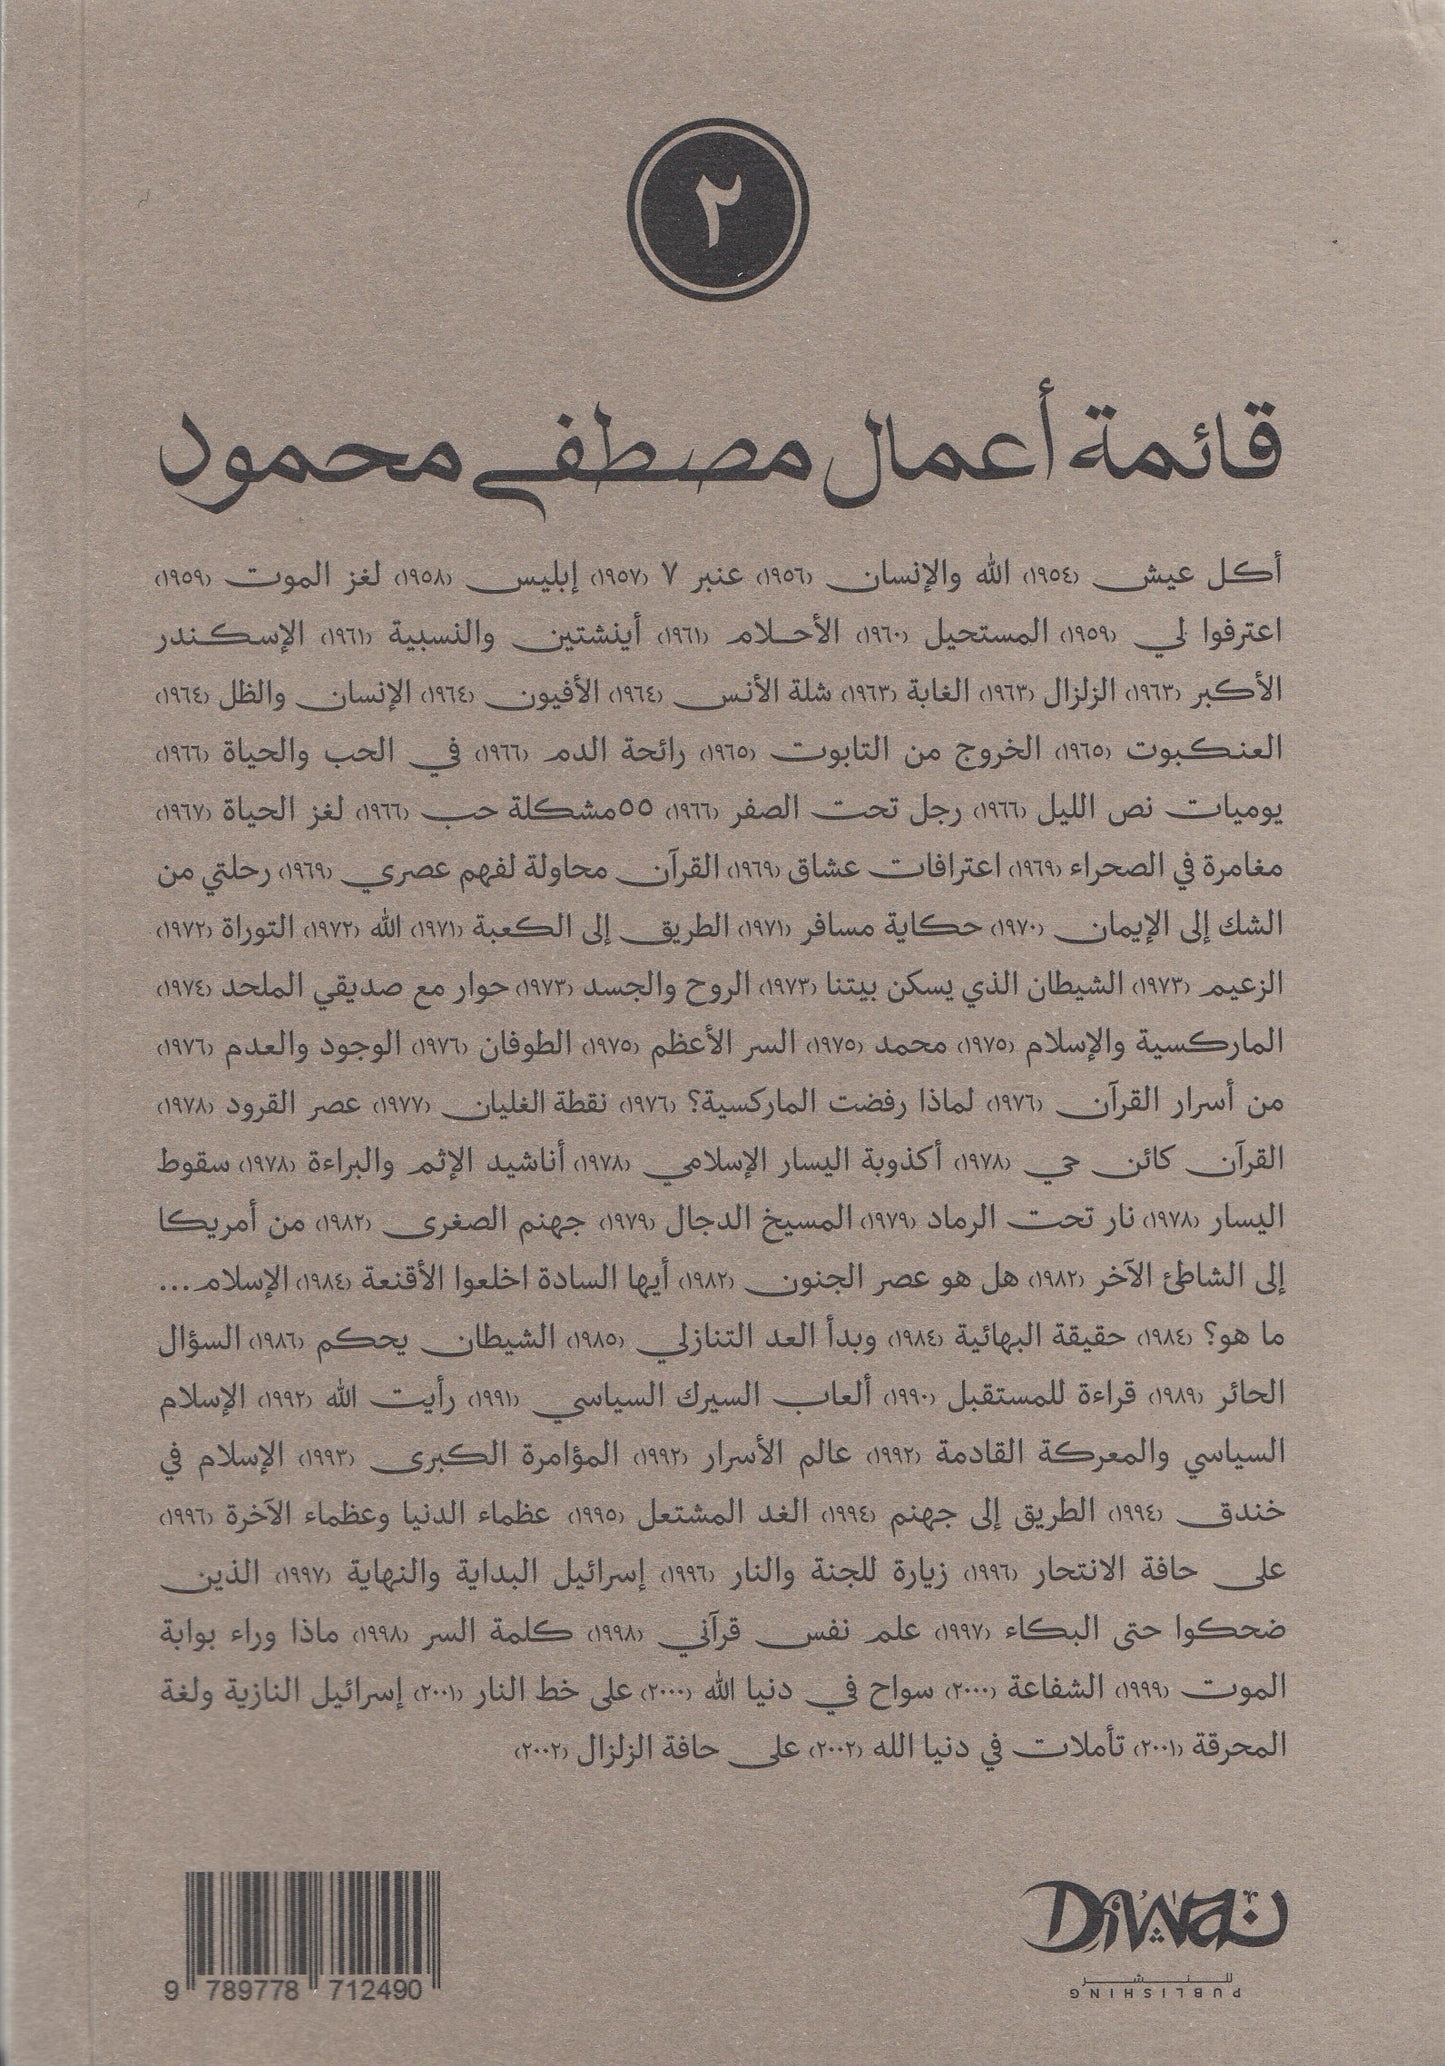 ٢
قائمة أعمال مصطفى محمود
أكل عيش (١٩٥٤) الله والإنسان (١٩٥٦) عنبر ٧ (١٩٥٧) إبليس (١٩٥٨) لغز الموت (١٩٥٩)
اعترفوا لي (١٩٥٩) المستحيل (١٩٦٠) الأحلام (١٩٦١) أينشتين والنسبية (١٩٦١) الإسكندر
الأكبر (١٩٦٣) الزلزال (١٩٦٣) الغابة (١٩٦٣) شلة الأنس (١٩٦٤) الأفيون (١٩٦٤) الإنسان والظل (١٩٦٤)
العنكبوت (١٩٦٥) الخروج من التابوت (١٩٦٥) رائحة الدم (١٩٦٦) في الحب والحياة (١٩٦٦)
يوميات نص الليل (١٩٦٦) رجل تحت الصفر (١٩٦٦) ٥٥مشكلة حب (١٩٦٦) لغز الحياة (١٩٦٧)
مغامرة في الصحراء (١٩٦٩) اعترافات عشاق (١٩٦٩) القرآن محاولة لفهم عصري (١٩٦٩) رحلتي من
الشك إلى الإيمان (١٩٧٠) حكاية مسافر (١٩٧١) الطريق إلى الكعبة (١٩٧١) الله (١٩٧٢) التوراة (١٩٧٢)
الزعيم (١٩٧٣) الشيطان الذي يسكن بيتنا (١٩٧٣) الروح والجسد (١٩٧٣) حوار مع صديقي الملحد (١٩٧٤)
الماركسية والإسلام (١٩٧٥) محمد (١٩٧٥) السر الأعظم (١٩٧٥) الطوفان (١٩٧٦) الوجود والعدم (١٩٧٦)
من أسرار القرآن (١٩٧٦) لماذا رفضت الماركسية؟ (١٩٧٦) نقطة الغليان (١٩٧٧) عصر القرود (١٩٧٨)
القرآن كائن حي (١٩٧٨) أكذوبة اليسار الإسلامي (١٩٧٨) أناشيد الإثم والبراءة (١٩٧٨) سقوط
اليسار (١٩٧٨) نار تحت الرماد (١٩٧٩) المسيخ الدجال (١٩٧٩) جهنم الصغرى (١٩٨٢) من أمريكا
إلى الشاطئ الآخر (١٩٨٢) هل هو عصر الجنون (١٩٨٢) أيها السادة اخلعوا الأقنعة (١٩٨٤) الإسلام...
ما هو؟ (١٩٨٤) حقيقة البهائية (١٩٨٤) وبدأ العد التنازلي (١٩٨٥) الشيطان يحكم (١٩٨٦) السؤال
الحائر (١٩٨٩) قراءة للمستقبل (١٩٩٠) ألعاب السيرك السياسي (١٩٩١) رأيت الله (١٩٩٢) الإسلام
السياسي والمعركة القادمة (١٩٩٢) عالم الأسرار (١٩٩٢) المؤامرة الكبرى (١٩٩٣) الإسلام في
خندق (١٩٩٤) الطريق إلى جهنم (١٩٩٤) الغد المشتعل (١٩٩٥) عظماء الدنيا وعظماء الآخرة (١٩٩٦)
على حافة الانتحار (١٩٩٦) زيارة للجنة والنار (١٩٩٦) إسرائيل البداية والنهاية (١٩٩٧) الذين
ضحكوا حتى البكاء (١٩٩٧) علم نفس قرآني (١٩٩٨) كلمة السر (١٩٩٨) ماذا وراء بوابة
الموت (١٩٩٩) الشفاعة (٢٠٠٠) سواح في دنيا الله (٢٠٠٠) على خط النار (٢٠٠١) إسرائيل النازية ولغة
المحرقة (٢٠٠١) تأملات في دنيا الله (٢٠٠٢) على حافة الزلزال (٢٠٠٢)
9 789778 712490
DiWaN
للنشر
PUBLISHING